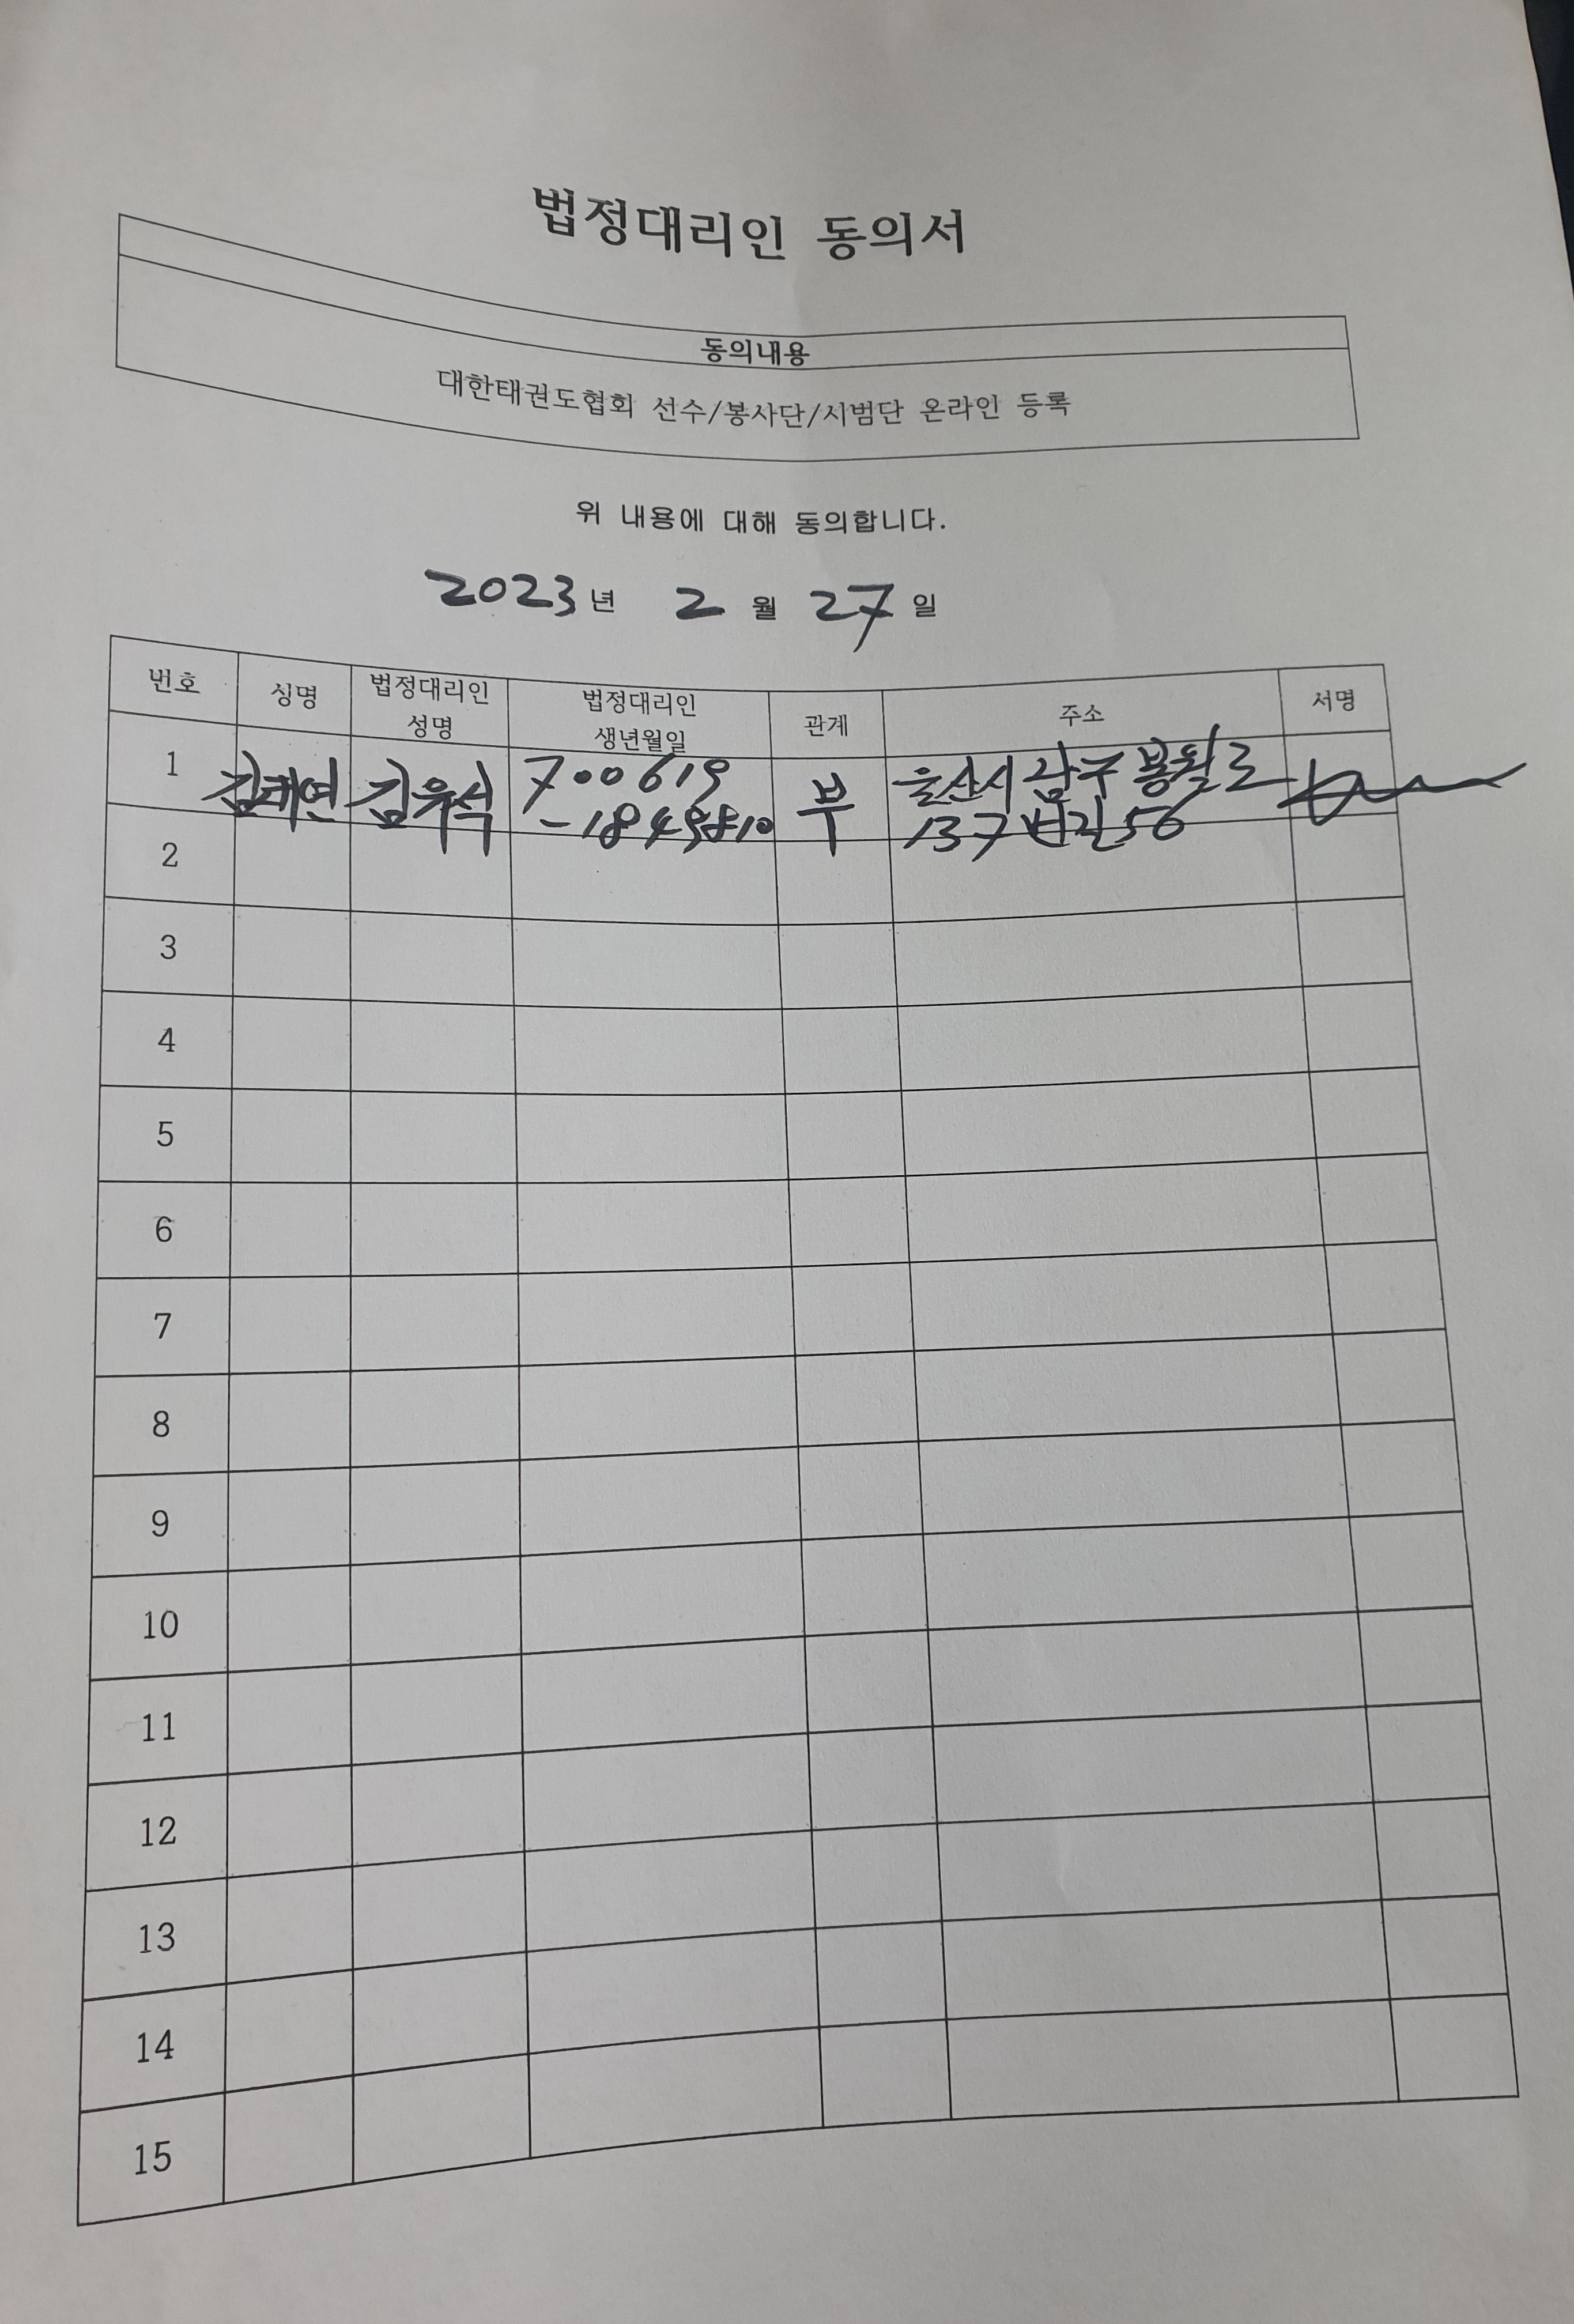 법정대리인 동의서
동의내용
대한태권도협회 선수/봉사단/시범단 온라인 등록
위 내용에 대해 동의합니다.
2023년 2월 27일
번호 성명 법정대리인 성명 법정대리인 생년월일 관계 주소 서명
1 김태연 김유식 700619 부 울산시 남구 봉월로
137번길 56
2
3
4
5
6
7
8
9
10
11
12
13
14
15